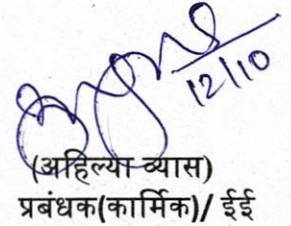 12/10
(अहिल्या व्यास)
प्रबंधक(कार्मिक)/ ईई